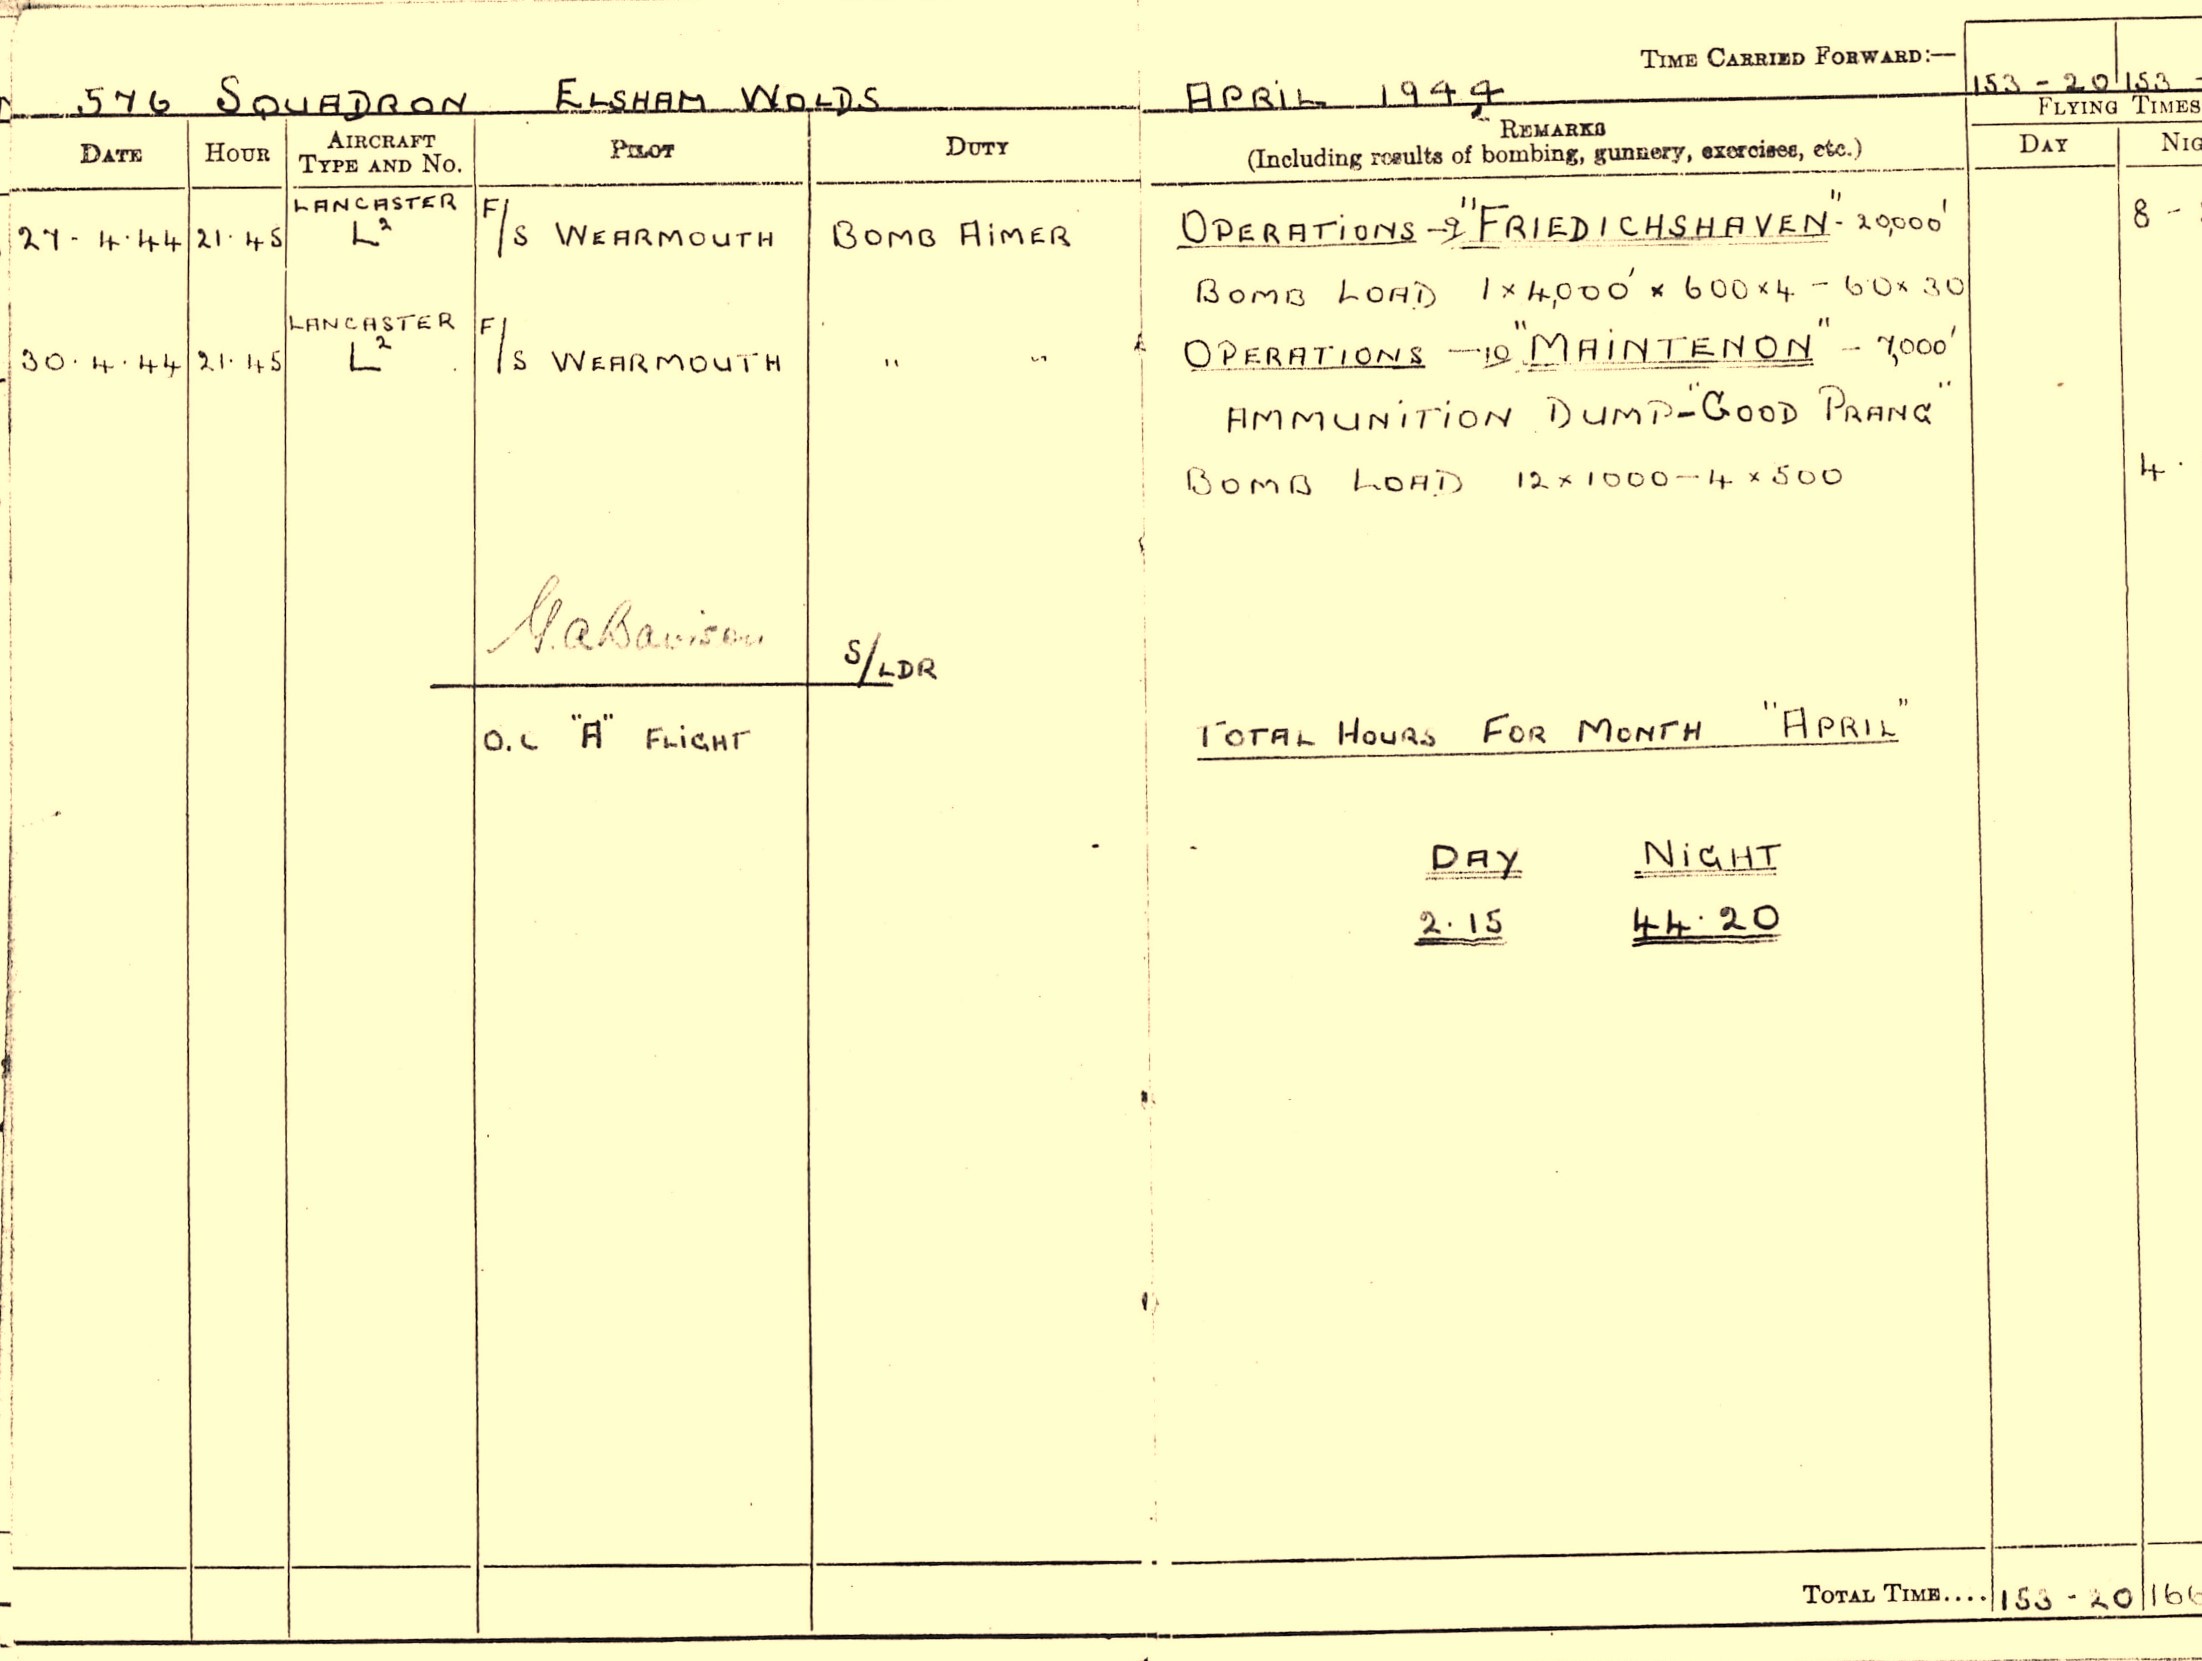 TIME CARRIED FORWARD:—
576 SQUADRON ELSHAM WOLDS APRIL 1944 153 - 20 153 -
DATE HOUR AIRCRAFT TYPE AND NO. PILOT DUTY REMARKS (Including results of bombing, gunnery, exercises, etc.) FLYING TIMES DAY NIG
LANCASTER
27 - 4·44 21·45 L² F/S WEARMOUTH BOMB AIMER OPERATIONS - 9 "FRIEDICHSHAVEN" - 20,000' 8 -
BOMB LOAD 1 × 4,000' × 600 × 4 - 60 × 30
LANCASTER
30·4·44 21·45 L² F/S WEARMOUTH " " OPERATIONS — 10 "MAINTENON" - 7,000'
AMMUNITION DUMP - "GOOD PRANG"
BOMB LOAD 12 × 1000 - 4 × 500 4 ·
S/LDR
O.C "A" FLIGHT
TOTAL HOURS FOR MONTH "APRIL"
DAY NIGHT
2·15 44·20
TOTAL TIME.... 153 - 20 166